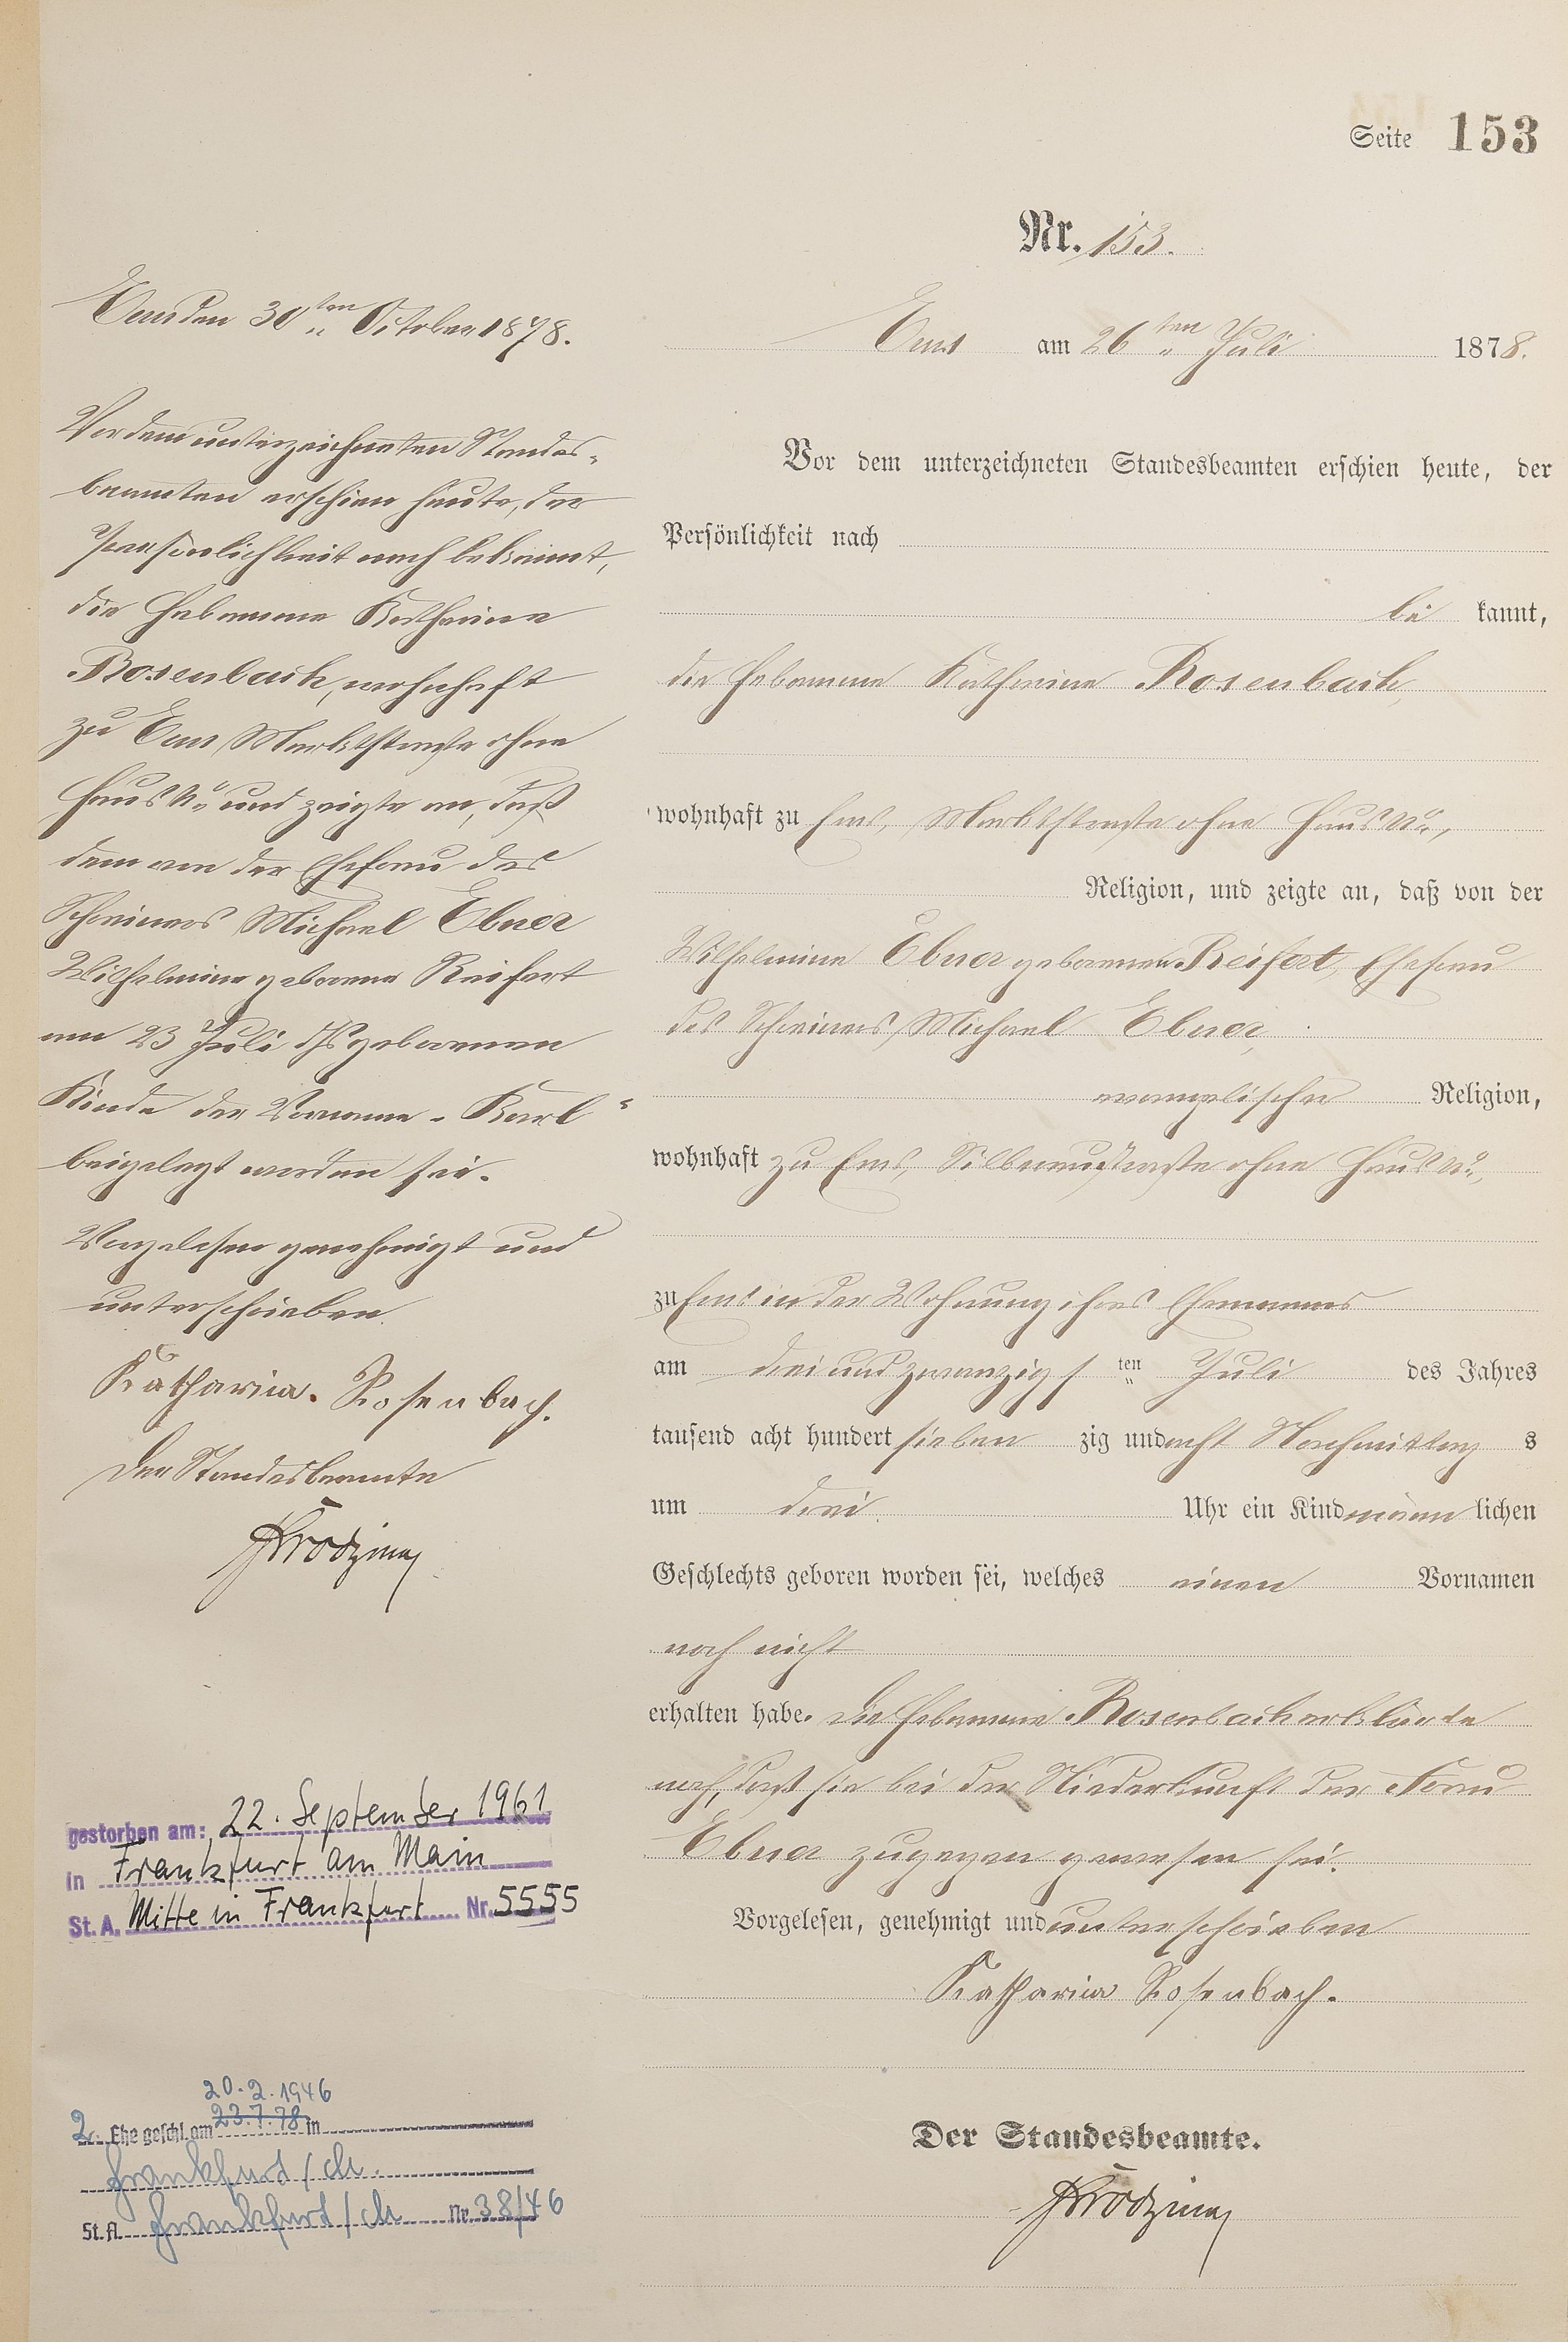 Seite 153
Nr. 153.
Ems am 26ten Juli 1878.
Vor dem unterzeichneten Standesbeamten erschien heute, der
Persönlichkeit nach
be kannt,
die Hebamme Katharina Rosenbach,
wohnhaft zu Ems, Marktstraße ohne Haus No,
Religion, und zeigte an, daß von der
Wilhelmine Ebner geborenen Reifert, Ehefrau
des Schreiners Michael Ebner,
evangelischer Religion,
wohnhaft zu Ems, Silberaustraße ohne Haus No,
zu Ems in der Wohnung ihres Ehemannes
am drei und zwanzigs ten Juli des Jahres
tausend acht hundert sieben zig und acht Nachmittag s
um drei Uhr ein Kind männ lichen
Geschlechts geboren worden sei, welches einen Vornamen
noch nicht
erhalten habe. Die Hebamme Rosenbach erklärte
noch, daß sie bei der Niederkunft der Frau
Ebner zugegen gewesen sei.
Vorgelesen, genehmigt und unterschrieben
Katharina Rosenbach.
Der Standesbeamte.
Ems den 30ten October 1878.
Vor dem unterzeichneten Standes-
beamten erschien heute, der
Persönlichkeit nach bekannt,
die Hebamme Katharina
Rosenbach, wohnhaft
zu Ems Marktstraße ohne
Haus No und zeigte an, daß
dem von der Ehefrau des
Schreiners Michael Ebner
Wilhelmine geborene Reifert
am 23 Juli d Js geborenen
Kinde der Vorname "Karl"
beigelegt worden sei.
Vorgelesen genehmigt und
unterschrieben.
Katharina. Rosenbach.
Der Standesbeamte
gestorben am: 22. September 1961
in Frankfurt am Main
St. A. Mitte in Frankfurt Nr. 5555
20.2.1946
2. Ehe geschl. am 23.7.78 in
Frankfurt/M.
St. A. Frankfurt/M Nr. 38/46